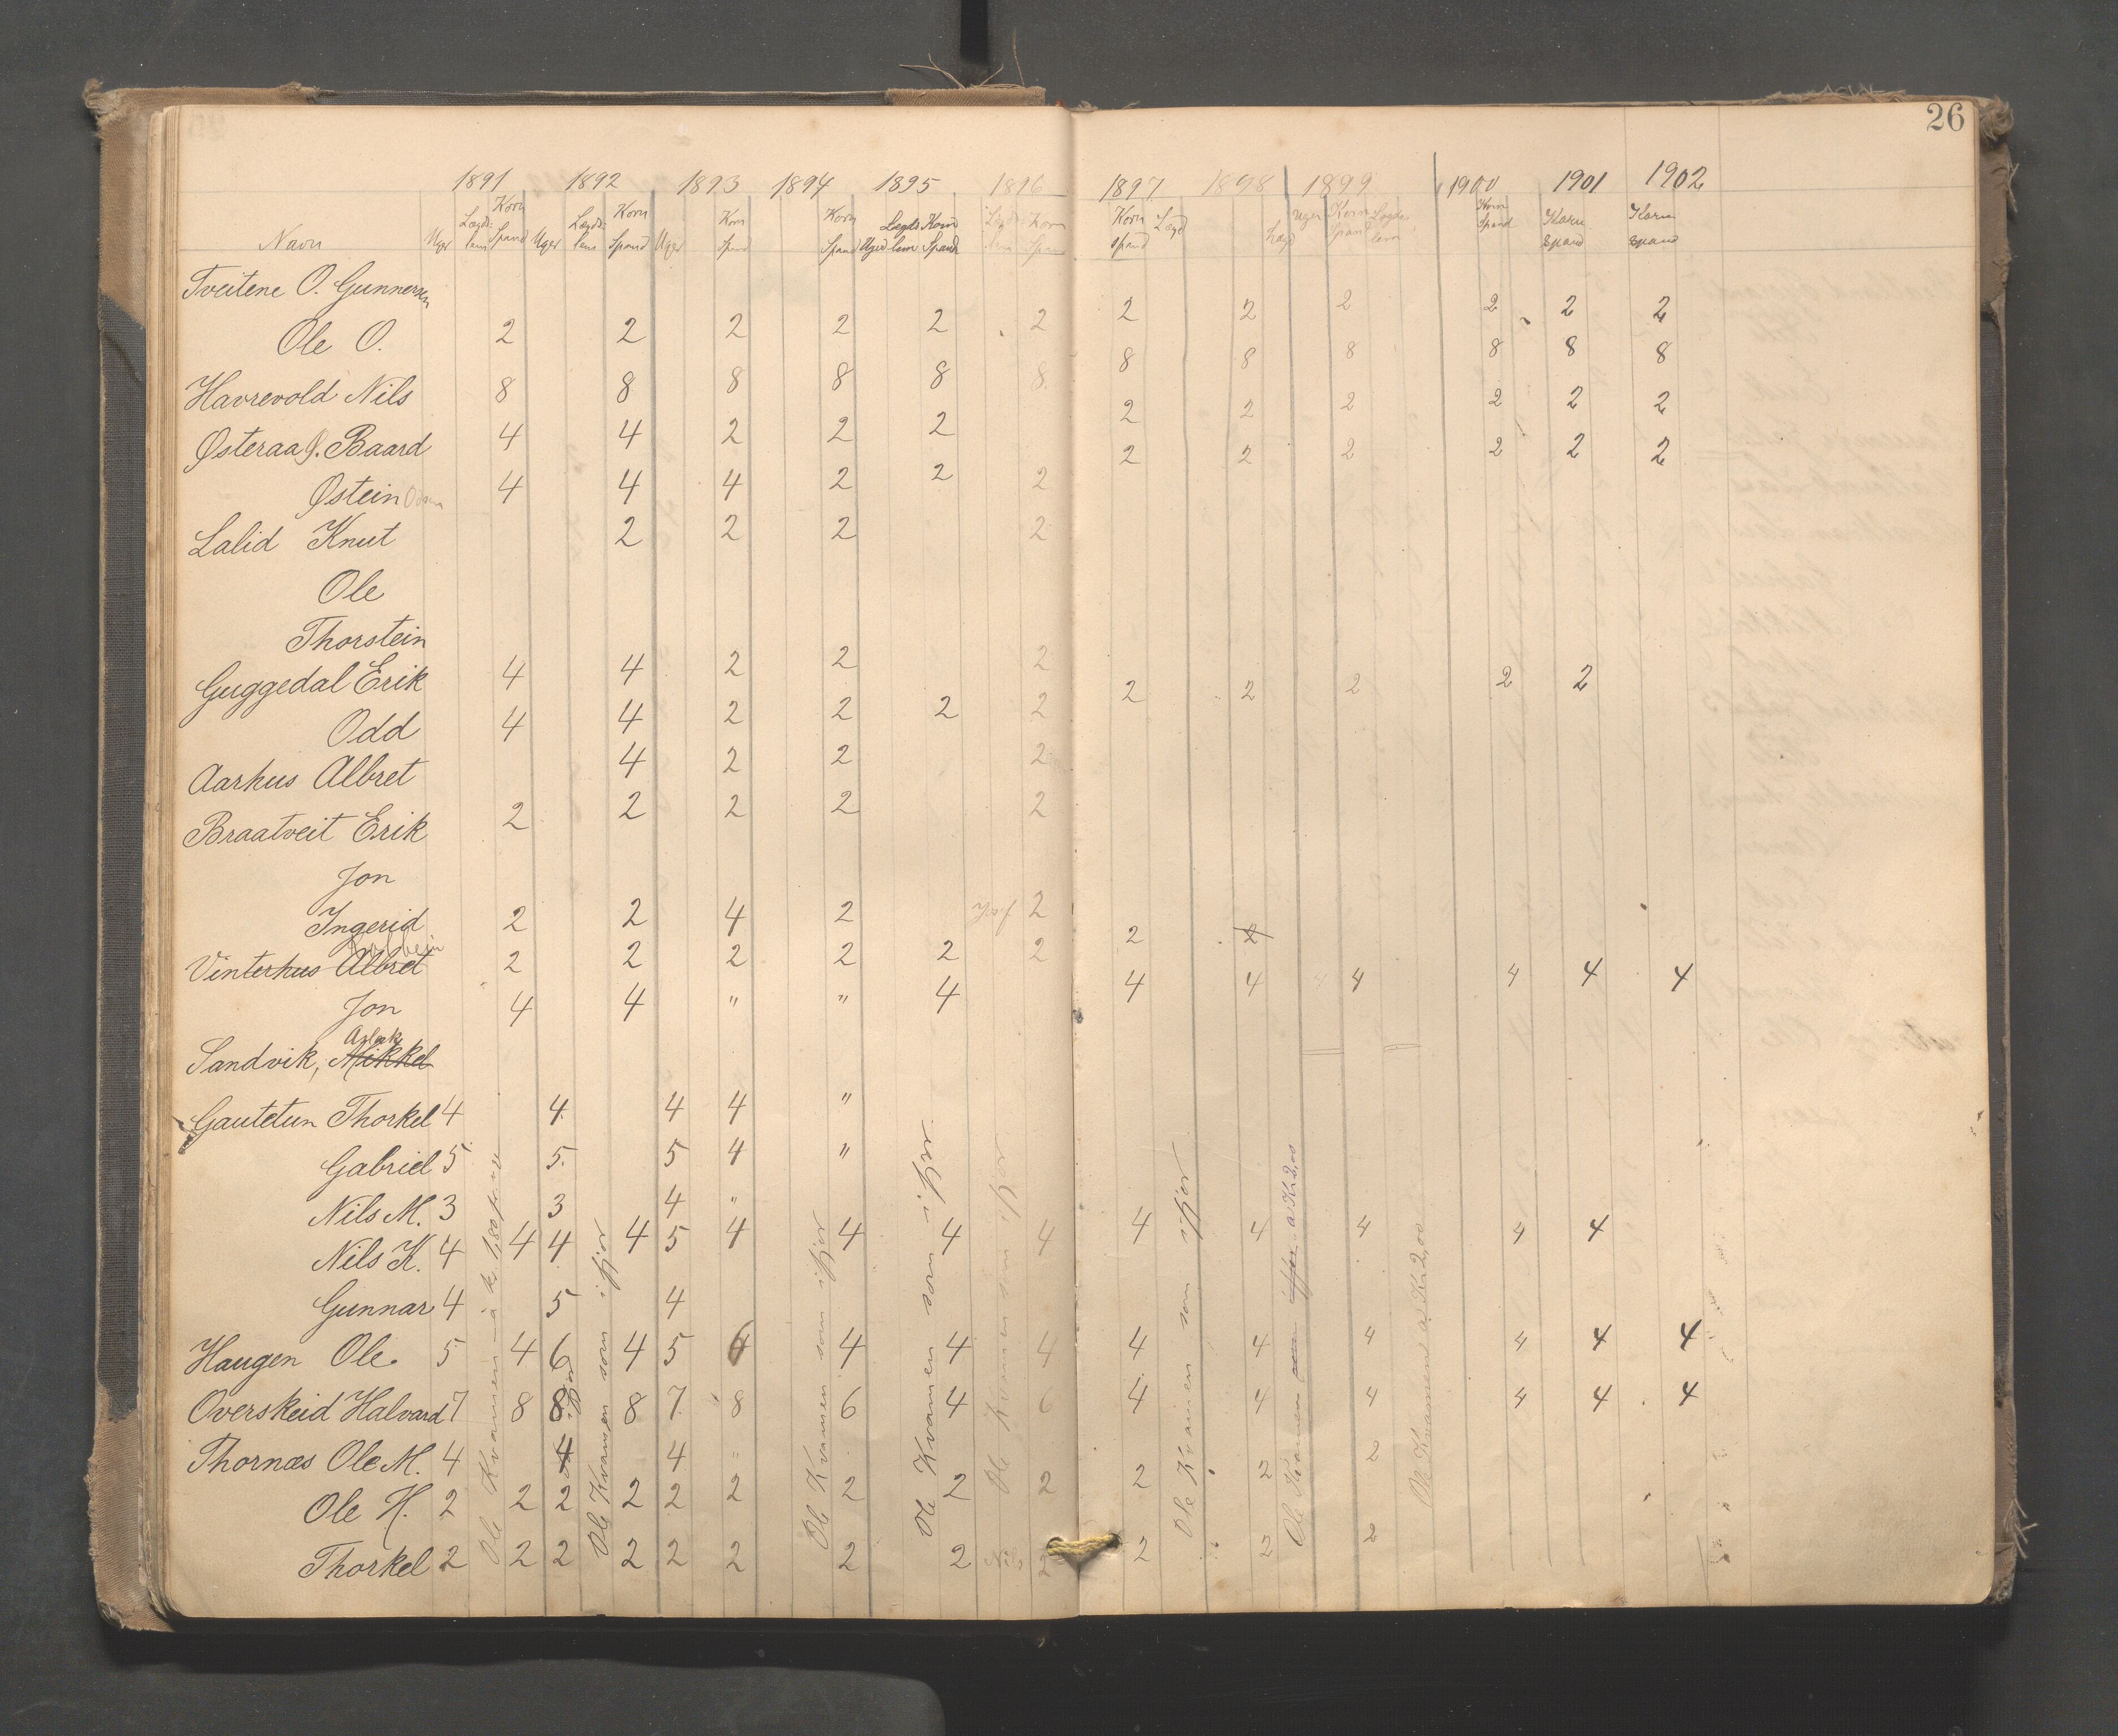 26
1891 1892 1893 1894 1895 1896 1897 1898 1899 1900 1901 1902
Navn Uger Lægdslem Korn Spand Uger Lægdslem Korn Spand Uger Korn Spand Korn Spand Uger Lægdslem Korn Spand Korn Korn Spand Lægd Lægd Uger Korn Spand Lægdslem Korn Spand Korn Spand Korn Spand
Tveitene O. Gunnersen
Ole O. 2 2 2 2 2 2 2 2 2 2 2 2
Havrevold Nils 8 8 8 8 8 8 8 8 8 8 8 8
Østeraa J. Baard 4 4 2 2 2 2 2 2 2 2 2
Østein 4 4 4 2 2 2 2 2 2 2 2 2
Lalid Knut 2 2 2 2
Ole
Thorstein
Guggedal Erik 4 4 2 2 2
Odd 4 4 2 2 2 2 2 2 2 2 2
Aarhus Albret 4 2 2 2
Braatveit Erik 2 2 2 2 2
Jon
Ingerid 2 2 4 2 2
Vinterhus Albret 2 2 2 2 2 2 2 2
Jon 4 4 " " 4 4 4 4 4 4 4
Aslak
Sandvik, Mikkel
Gautetun Thorkel 4 4 4 4 "
Gabriel 5 5 5 4 "
Nils M. 3 3 4 "
Nils K. 4 4 4 4 5 4 4 4 4 4 4 4 4 4
Gunnar 4 5 4
Haugen Ole 5 4 6 4 5 6 4 4 4 4 4 4 4 4 4
Overskeid Halvard 7 8 8 8 7 8 6 4 6 4 4 4 4 4 4
Thornæs Ole M. 4 4 4 " 2
Ole H. 2 2 2 2 2 2 2 2 2 2 2
Thorkel 2 2 2 2 2 2 2 2 2 2 2 2
Ole Kvamen à kr 1,80 pr uge
Ole Kvamen som ifjor
Ole Kvamen som ifjor
Ole Kvamen som ifjor
Ole Kvamen som ifjor
Ole Kvamen som ifjor
Ole Kvamen som ifjor a Kr 2,00
Ole Kvamen a Kr 2,00